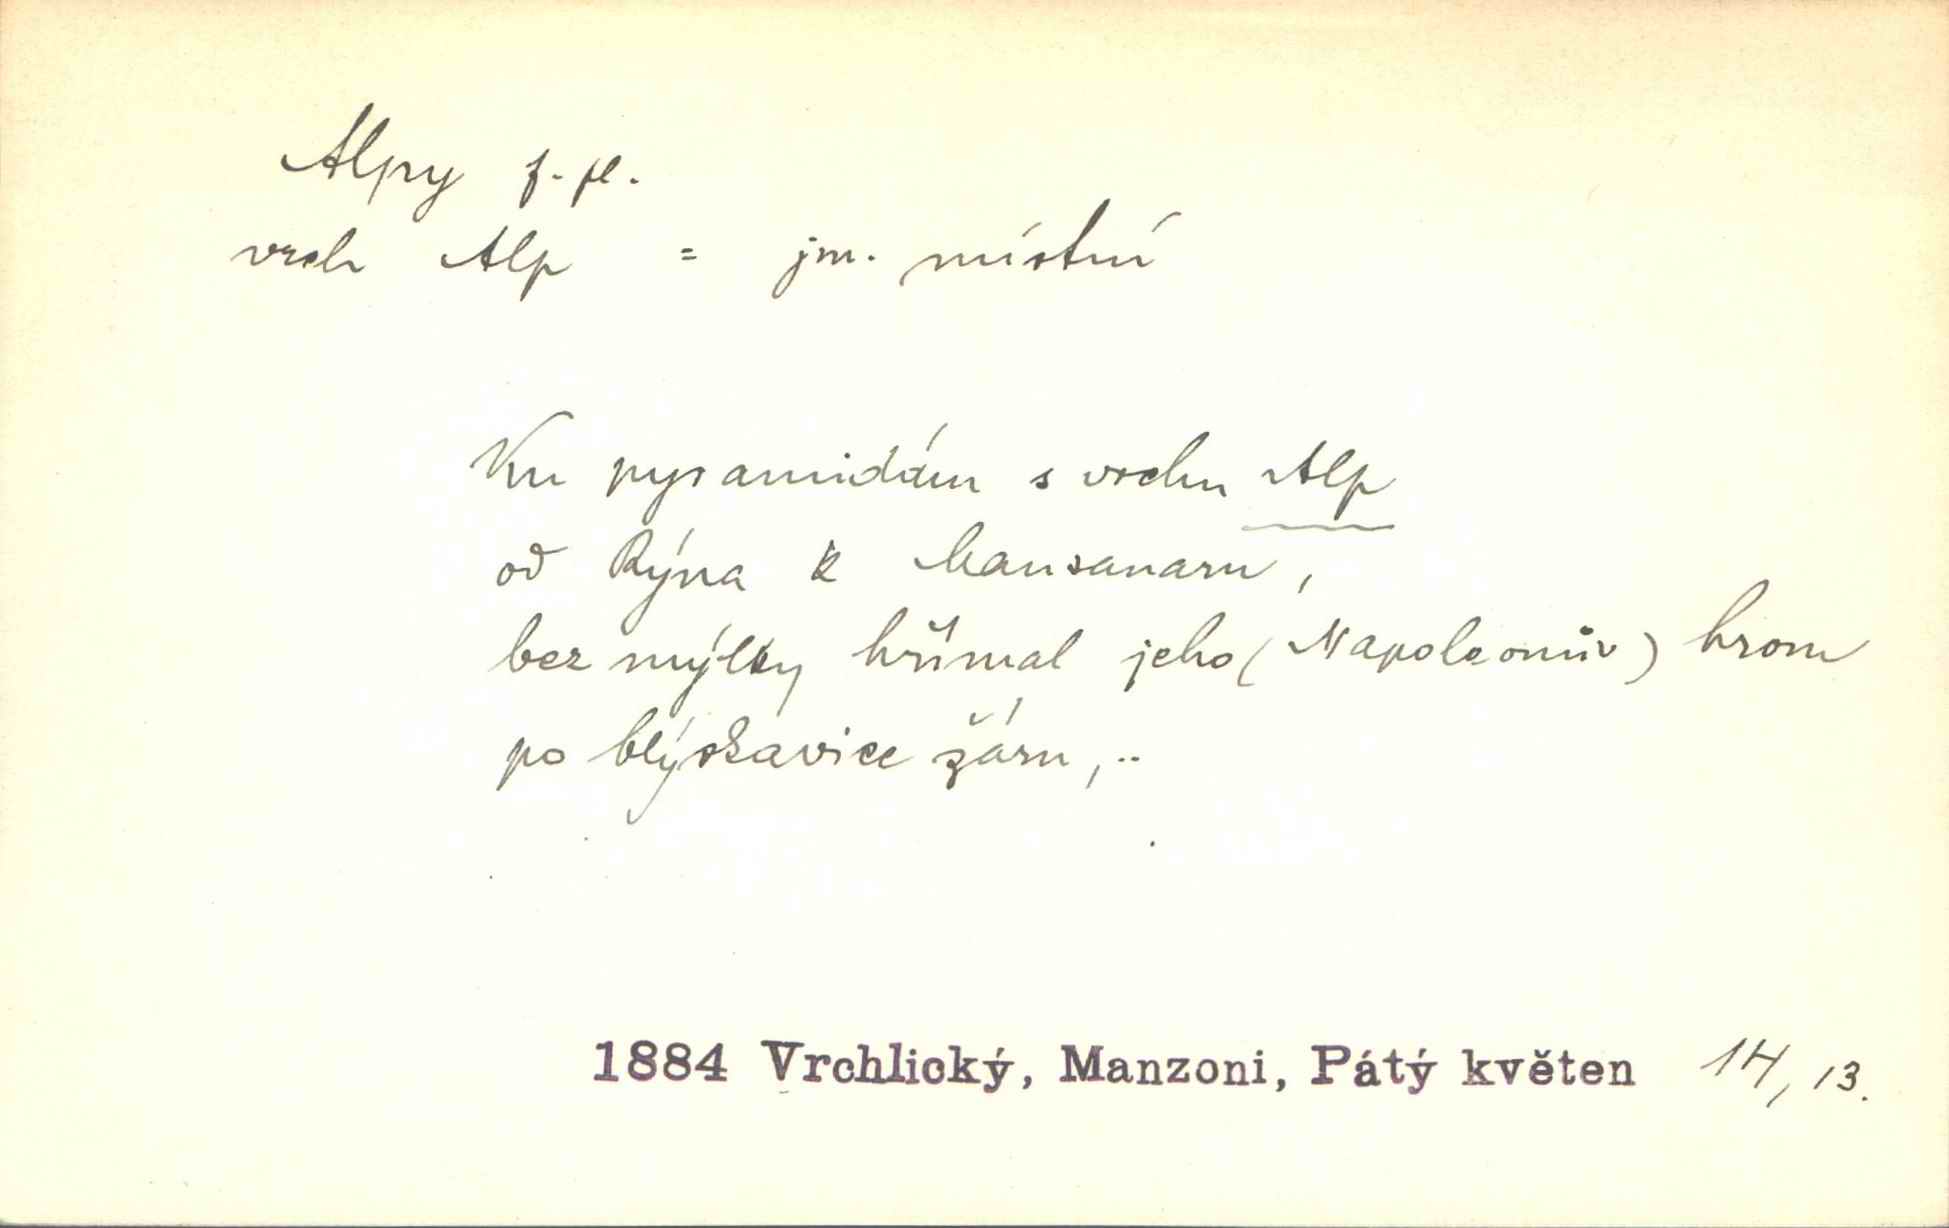 Alpy f. pl.
vrch Alp = jm. místní
Ku pyramidám s vrchu Alp
od Rýna k Mansanaru,
bez mýlky hřímal jeho (Napoleonův) hrom
po blýskavice žáru,..
1884 Vrchlický, Manzoni, Pátý květen 14, 13.